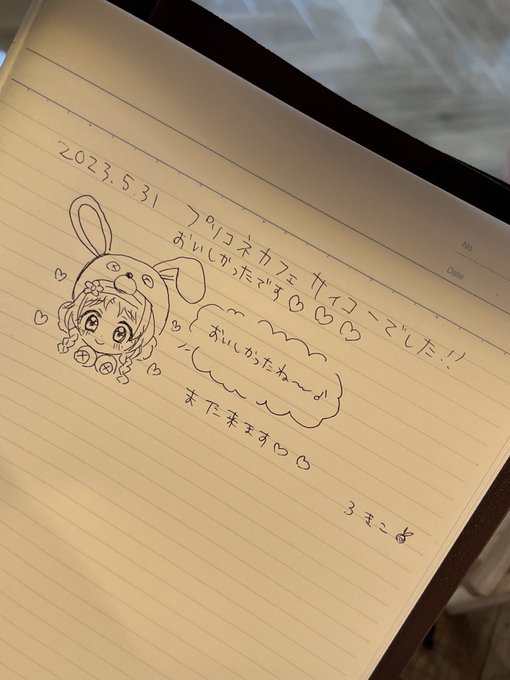 No.
Date
2023.5.31 プリコネカフェ サイコーでした!!
おいしかったです♡♡♡
おいしかったね〜♪
また来ます♡♡
ろまこ